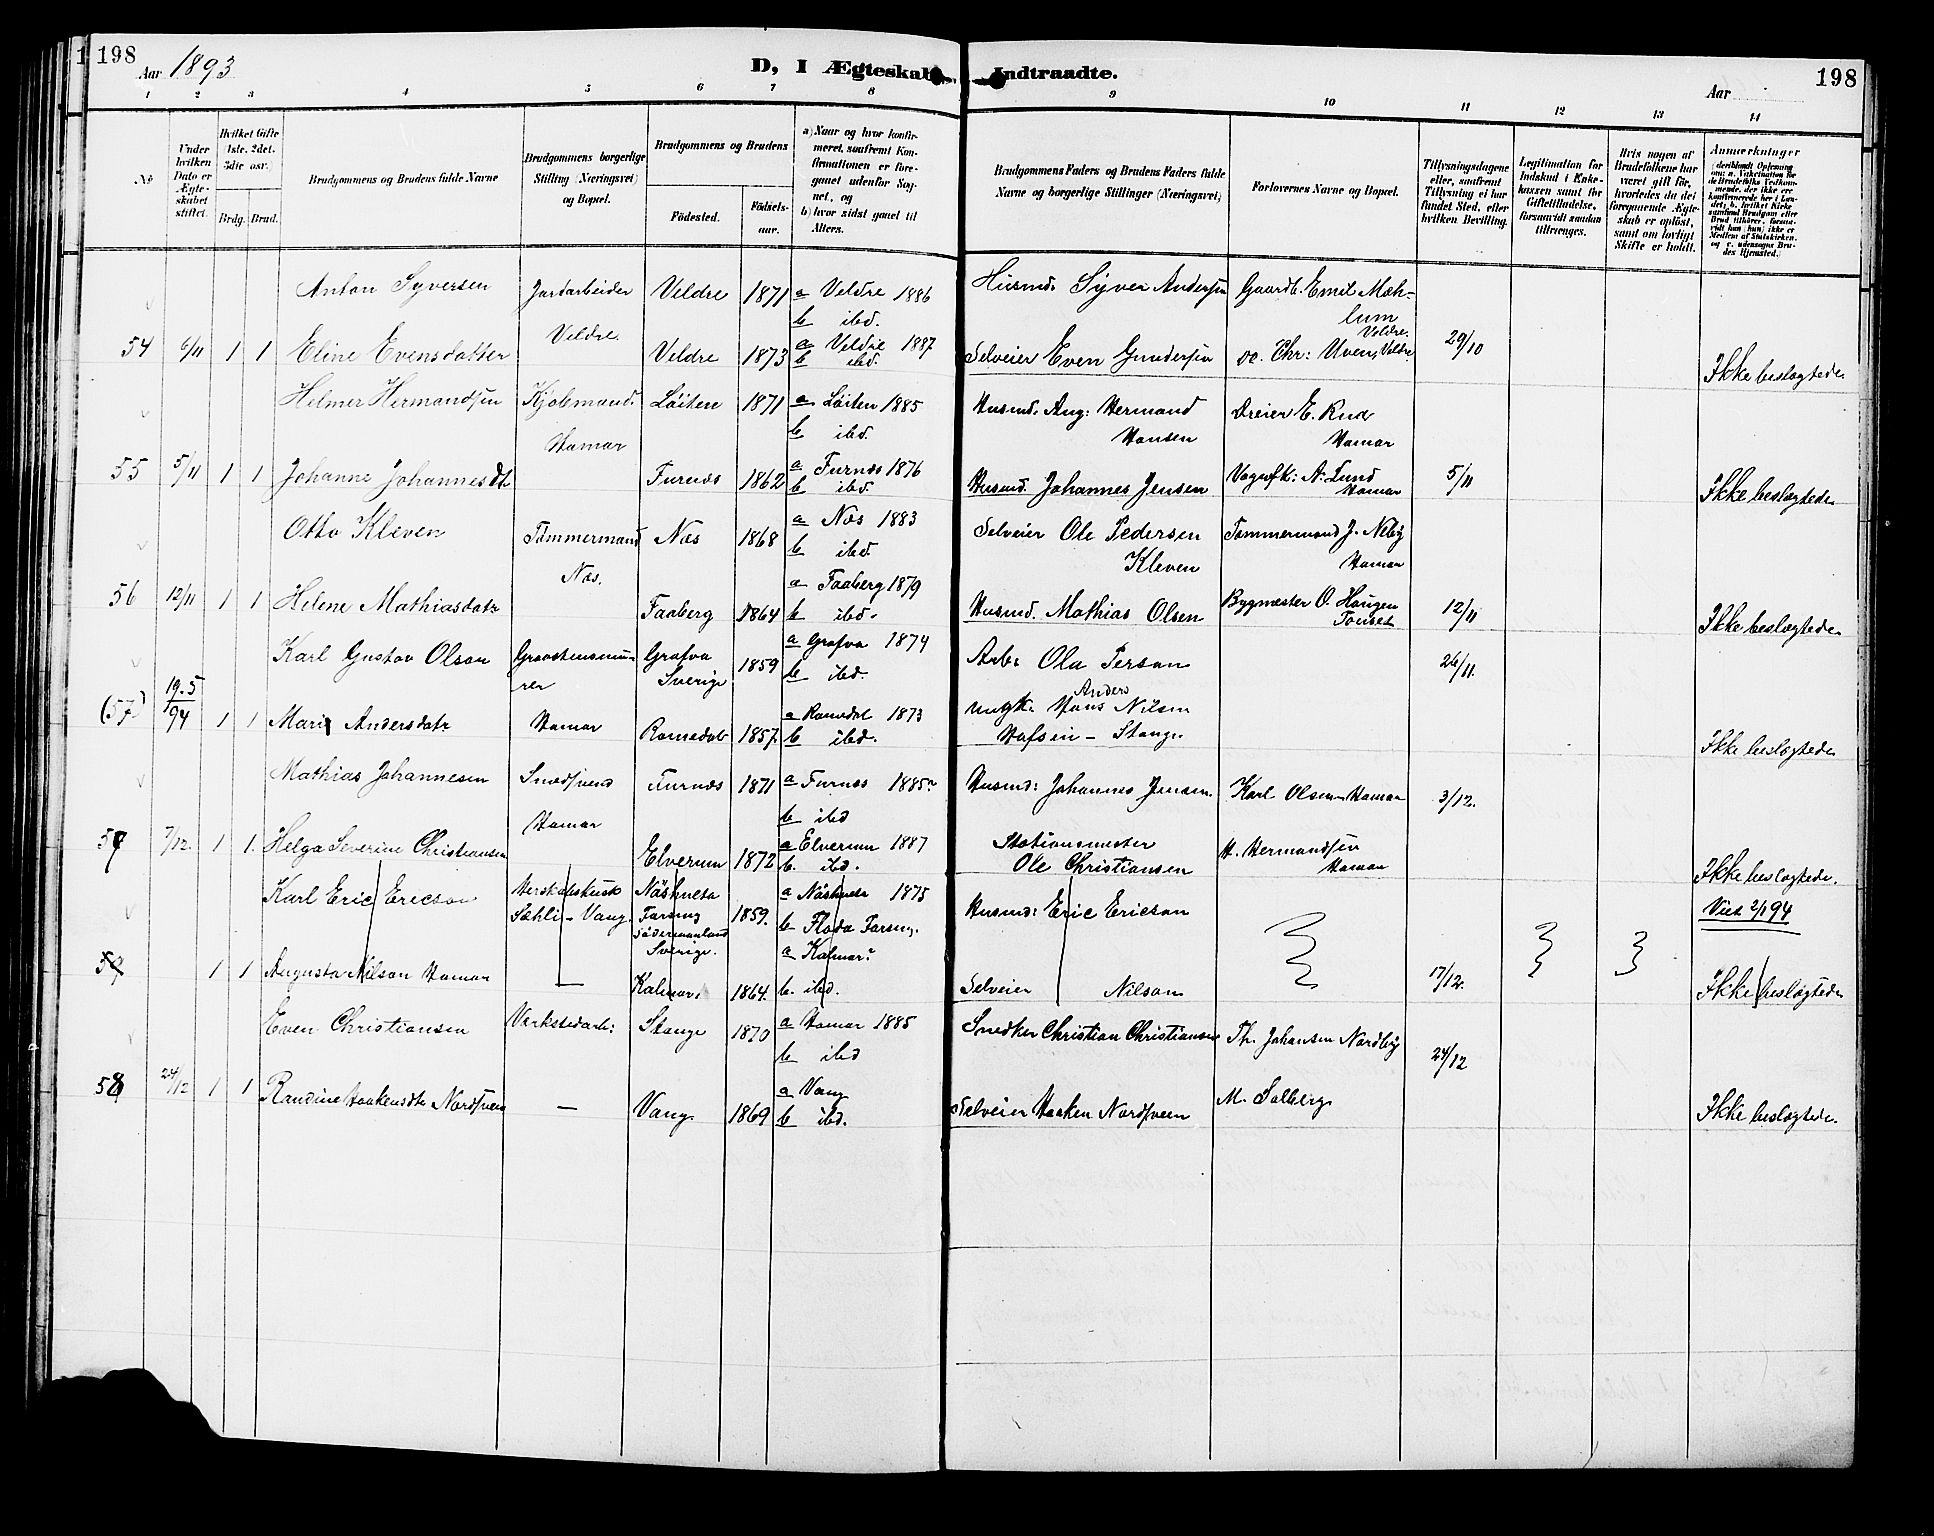 198
Aar 1893
D, I Ægteskab Indtraadte.
Aar
198
1 2 3 4 5 6 7 8 9 10 11 12 13 14
No
Under hvilken Dato er Ægteskabet stiftet.
Hvilket Gifte (1ste, 2det, 3die osv.)
Brdg. Brud.
Brudgommens og Brudens fulde Navne
Brudgommens borgerlige Stilling (Næringsvei) og Bopæl.
Brudgommens og Brudens
Fødested.
Fødselsaar.
a) Naar og hvor konfirmeret, saafremt Konfirmationen er foregaaet udenfor Sognet, og
b) hvor sidst gaaet til Alters.
Brudgommens Faders og Brudens Faders fulde Navne og borgerlige Stillinger (Næringsvei)
Forlovernes Navne og Bopæl.
Tillysningsdagene eller, saafremt Tillysning ei har fundet Sted, efter hvilken Bevilling.
Legitimation for Indskud i Enkekassen samt for Giftetilladelse, forsaavidt saadan tiltrænges.
Hvis nogen af Brudefolkene har været gift før, hvorledes da det foregaaende Ægteskab er opløst, samt om lovligt Skifte er holdt.
Anmærkninger
Anton Syversen Jordarbeider Veldre 1871 a Veldre 1886 Husmd. Syver Andersen Gaardb. Emil Mæhlum
Veldre. b ibd. Veldre.
54 6/11 1 1 Eline Evensdatter Veldre 1873 a Veldre 1887 b ibd. Selveier Even Gundersen do. Chr: Uven, Veldre 29/10 Ikke beslægtede
Helmer Hermandsen Kjøbmand. Løiten 1871 a Løiten 1885 Husmd. Aug: Hermand Hansen Dreier E. Rud
Hamar b ibd. Hamar
55 5/11 1 1 Johanne Johannesdt Furnæs 1862 a Furnæs 1876 b ibd. Husmd. Johannes Jensen Vognfk: A. Lund Hamar 5/11 Ikke beslægtede
Otto Kleven Tømmermand Næs 1868 a Næs 1883 Selveier Ole Pedersen Kleven Tømmermand J. Neby
Næs. b ibd Hamar
56 12/11 1 1 Helene Mathiasdatr Faaberg 1864 a Faaberg 1879 b ibd. Husmd. Mathias Olsen Bygmester O. Haugen Tønset 12/11 Ikke beslægtede
Karl Gustav Olson Graastensmurer Grafva Sverige 1859 a Grafva 1874 b ibd. Arb: Ola Person 26/11.
(57) 19.5/94 1 1 Mari Andersdatr Hamar Romedal 1857. a Romedal 1873 b ibd. Ungk. Hans Anders Nilsen
Stange Ikke beslægtede
Mathias Johannesen Furnæs 1871 a Furnæs 1885 Husmd: Johannes Jensen Karl Olsen Hamar 3/12.
Hamar b ibd
7/12. 1 1. Helga Severine Christiansen Elverum 1872 a Elverum 1887 b. ibd. Stationsmester Ole Christiansen H. Hermandsen Hamar Ikke beslægtede.
Karl Eric Ericson Sæhli - Vang. Näshulta Farsing Södermanland Sverige. 1859. a Näshulta 1875 b Floda Husmd: Eric Ericson Viet 2/1 94
59 1 1 Augusta Nilson Hamar — Kalmar. 1864. a Kalmar. b. ibd. Selveier Nilson 17/12. Ikke beslægtede
Even Christiansen Værkstedarb: Stange 1870 a Hamar 1885 b ibd Snedker Christian Christiansen Th. Johansen Nordby 24/12
58 24/12 1 1 Randine Haakensdtr Nordsveen — Vang 1869 a Vang b ibd. Selveier Haaken Nordsveen M. Solberg Ikke beslægtede.